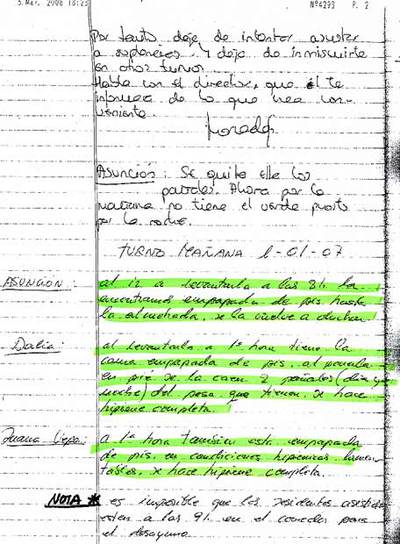 5. Mar. 2008 18:23 Nº4293 P. 2
Por tanto deje de intentar asustar
a suplencias y deje de inmiscuirte
en otros turnos.
Habla con el director, que él te
informe de lo que crea con-
veniente.
Asunción: Se quita ella los
pañales. Ahora por la
mañana no tiene el verde puesto
por la noche.
TURNO MAÑANA 1-01-07
ASUNCION: al ir a levantarla a las 8h. la
encontramos empapada de pis hasta
la almohada, se la vuelve a duchar.
Dalia: al levantarla a 1ª hora tiene la
cama empapada de pis, al ponerla
en pie se le caen 2 pañales (día y
noche) del peso que tienen. Se hace
higiene completa.
Juana: a 1ª hora también está empapada
de pis, en condiciones higiénicas lamen-
tables, se hace higiene completa.
NOTA * es imposible que los residentes asistidos
estén a las 9h. en el comedor para
el desayuno